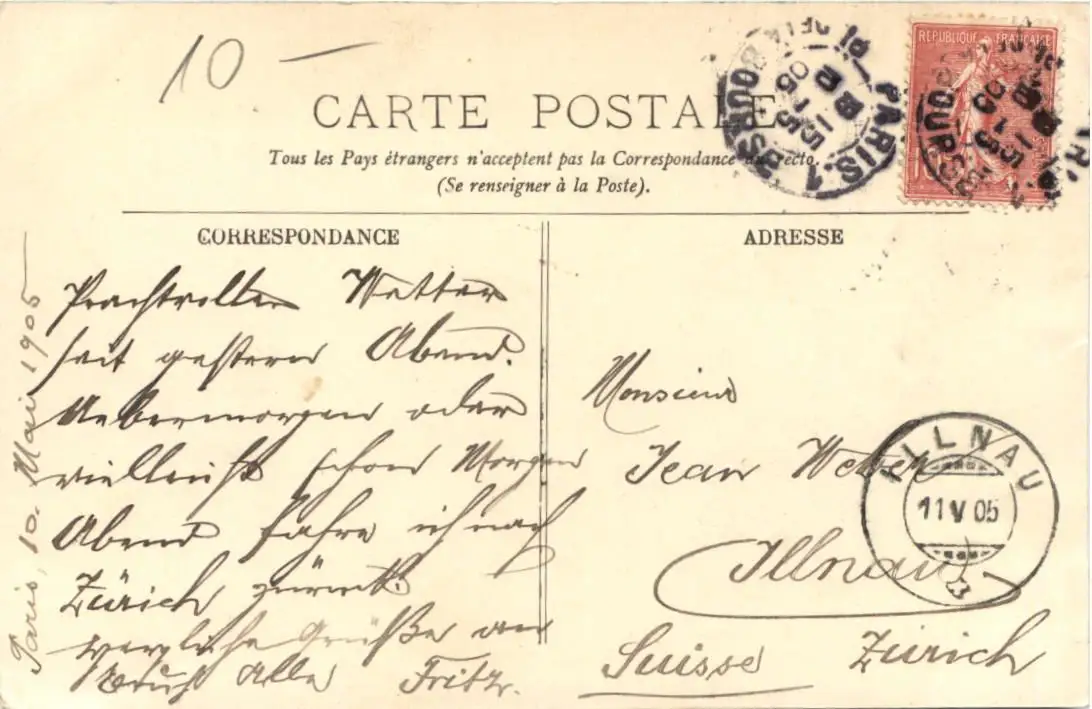 10 —
CARTE POSTALE
Tous les Pays étrangers n'acceptent pas la Correspondance au recto.
(Se renseigner à la Poste).
REPUBLIQUE FRANÇAISE
PARIS. 1
PL. DE LA BOURSE
15 5
05
CORRESPONDANCE
ADRESSE
Paris, 10. Mai 1905
Prachtvolles Wetter
seit gestern Abend.
Uebermorgen oder
vielleicht schon Morgen
Abend fahre ich nach
Zürich zurück.
Herzliche Grüße an
Euch Alle Fritz.
Monsieur
Jean Weber
Illnau
Suisse Zürich
ILLNAU
11 V 05